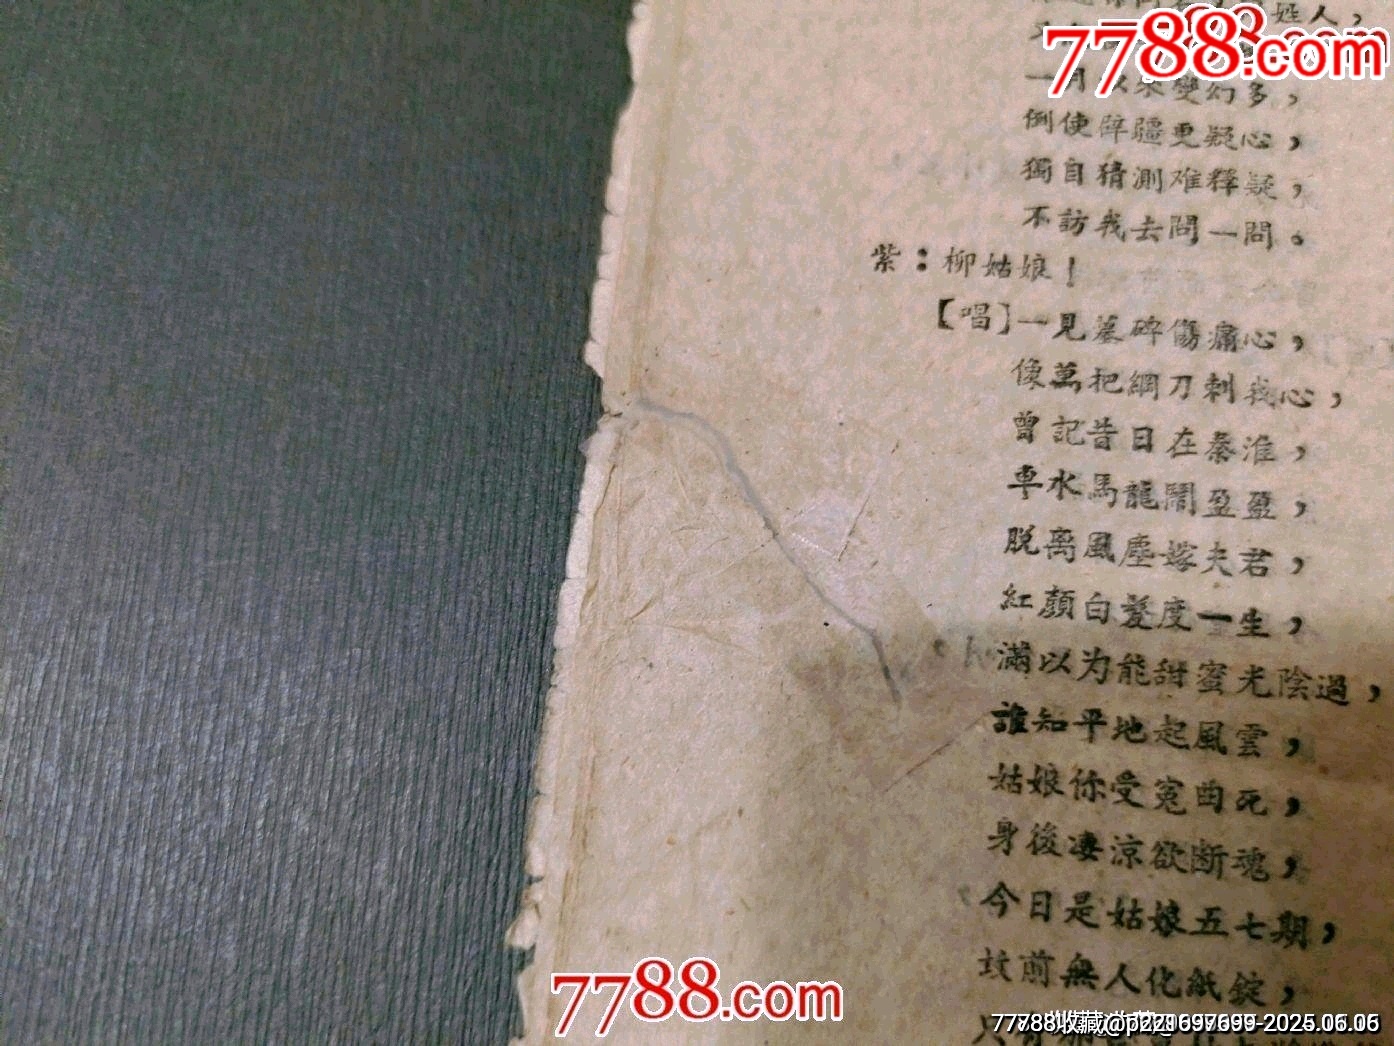 姓人，
7788.com
一月以來變幻多，
倒使辟疆更疑心，
獨自猜測难釋疑，
不訪我去問一問。
紫：柳姑娘！
【唱】一見墓碑傷痛心，
像萬把鋼刀刺我心，
曾記昔日在秦淮，
車水馬龍鬧盈盈，
脫离風塵嫁夫君，
紅顏白髮度一生，
滿以为能甜蜜光陰過，
誰知平地起風雲，
姑娘你受冤曲死，
身後凄涼欲断魂，
今日是姑娘五七期，
坟前無人化紙錠，
7788.com
只有